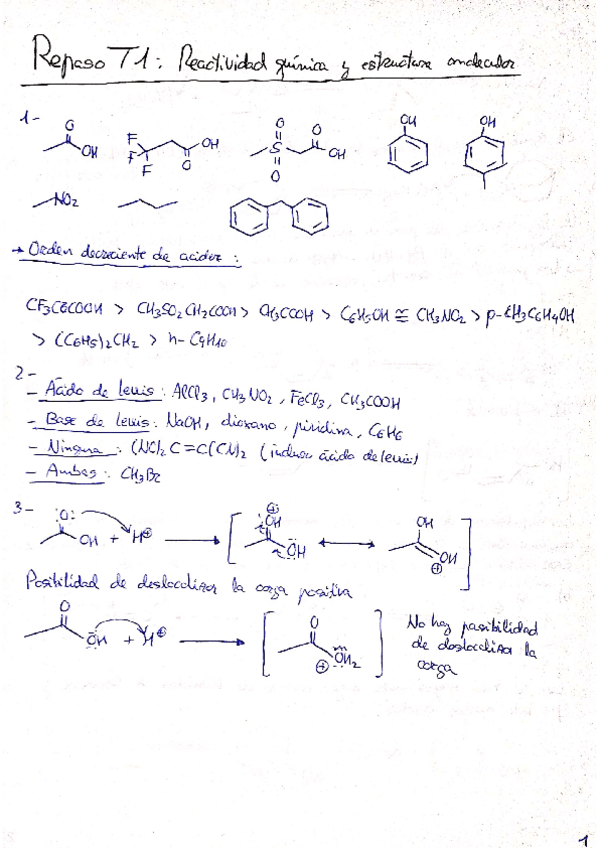 Repaso T1: Reactividad química y estructura molecular
1-
O
OH
F
F
F
O
OH
O
S
O
O
OH
OH
OH
NO2
→ Orden decreciente de acidez :
CF3CH2COOH > CH3SO2CH2COOH > CH3COOH > C6H5OH ≅ CH3NO2 > p-CH3C6H4OH
> (C6H5)2CH2 > n-C4H10
2-
- Ácido de Lewis : AlCl3, CH3NO2, FeCl3, CH3COOH
- Base de Lewis : NaOH, dioxano, piridina, C6H6
- Ninguna : (NC)2C=C(CN)2 (incluso ácido de lewis)
- Ambas : CH3Br
3-
:O:
OH + H⊕
⊕
OH
OH
OH
OH
⊕
Posibilidad de deslocalizar la carga positiva
O
OH + H⊕
O
⊕ OH2
No hay posibilidad
de deslocalizar la
carga
1